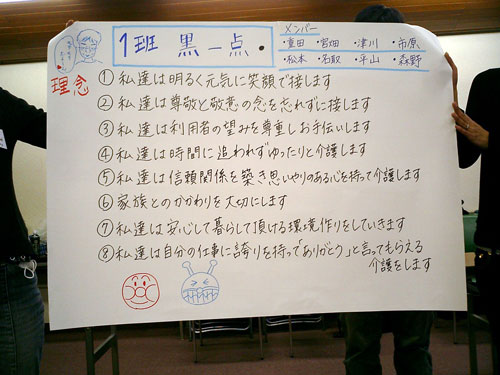 1班 黒一点.
メンバー
・重田 ・宮畑 ・津川 ・市原
・松本 ・名取 ・平山 ・森野
理念
①私達は明るく元気に笑顔で接します
②私達は尊敬と敬意の念を忘れずに接します
③私達は利用者の望みを尊重しお手伝いします
④私達は時間に追われずゆったりと介護します
⑤私達は信頼関係を築き思いやりのある心を持って介護します
⑥家族とのかかわりを大切にします
⑦私達は安心して暮らして頂ける環境作りをしていきます
⑧私達は自分の仕事に誇りを持って「ありがとう」と言ってもらえる
介護をします